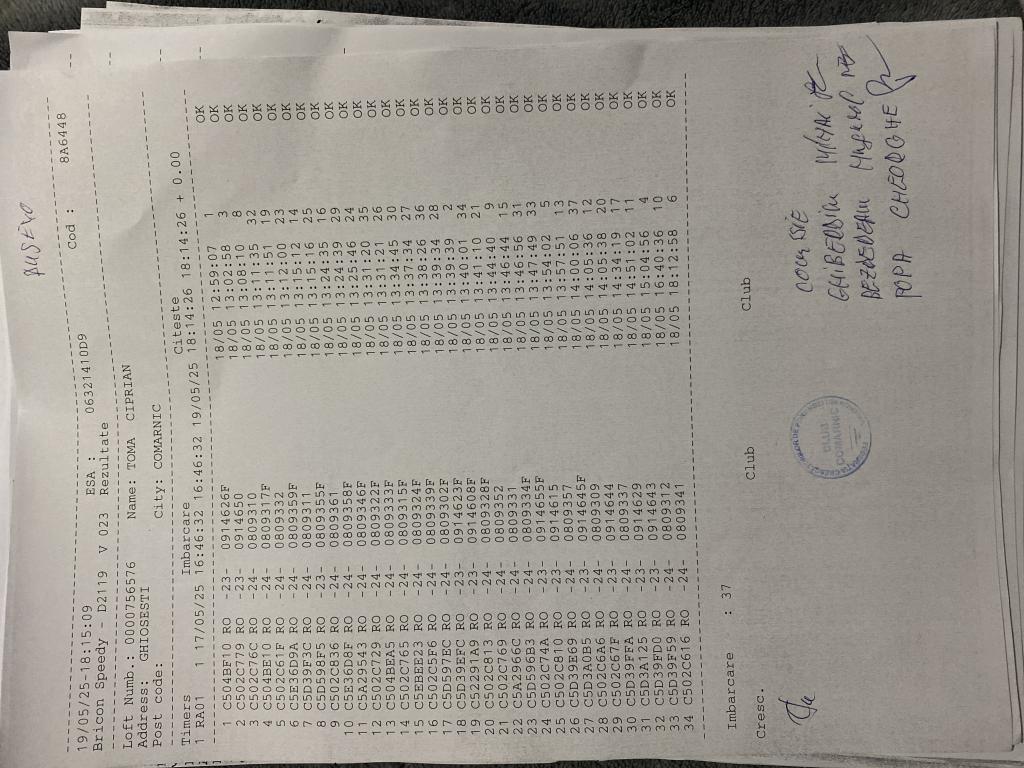 RUSENO
19/05/25-18:15:09 ESA : 06321410D9 Cod : 8A6448
Bricon Speedy - D2119 V 023 Rezultate
Loft Numb.: 0000756576 Name: TOMA CIPRIAN
Address: GHIOSESTI
Post code: City: COMARNIC
Timers Imbarcare Citeste
1 RA01 1 17/05/25 16:46:32 16:46:32 19/05/25 18:14:26 18:14:26 + 0.00
1 C504BF10 RO -23- 0914626F 18/05 12:59:07 1 OK
2 C502C779 RO -23- 0914653 18/05 13:02:58 3 OK
3 C502C76C RO -24- 0809310 18/05 13:08:10 8 OK
4 C504BE10 RO -24- 0809317F 18/05 13:11:35 32 OK
5 C502C61F RO -24- 0809332 18/05 13:11:51 19 OK
6 C5E36D9A RO -24- 0809359F 18/05 13:12:00 23 OK
7 C5D39F3C RO -24- 0809311 18/05 13:15:12 14 OK
8 C5D598F5 RO -23- 0809355F 18/05 13:15:16 25 OK
9 C502C836 RO -24- 0809361 18/05 13:24:35 16 OK
10 C5E36D8F RO -24- 0809358F 18/05 13:24:39 29 OK
11 C5A29543 RO -24- 0809346F 18/05 13:25:46 24 OK
12 C502C729 RO -24- 0809322F 18/05 13:31:20 35 OK
13 C504BEA5 RO -24- 0809333F 18/05 13:31:21 26 OK
14 C502C765 RO -24- 0809315F 18/05 13:34:45 30 OK
15 CEBEEE23 RO -24- 0809324F 18/05 13:37:34 27 OK
16 C502C5F6 RO -24- 0809339F 18/05 13:38:26 36 OK
17 C5D597EC RO -24- 0809302F 18/05 13:39:34 28 OK
18 C5D39EFC RO -23- 0914623F 18/05 13:39:39 2 OK
19 C52291A9 RO -23- 0914608F 18/05 13:40:01 34 OK
20 C502C813 RO -24- 0809328F 18/05 13:41:10 21 OK
21 C502C769 RO -24- 0809352 18/05 13:44:40 9 OK
22 C5A2966C RO -24- 0809331 18/05 13:46:44 15 OK
23 C5D596B3 RO -24- 0809334F 18/05 13:46:56 31 OK
24 C502C74A RO -23- 0914655F 18/05 13:48:49 33 OK
25 C502C810 RO -23- 0914615 18/05 13:54:02 5 OK
26 C5D39E69 RO -24- 0809357 18/05 13:57:51 13 OK
27 C5D3A0B5 RO -23- 0914645F 18/05 14:00:06 37 OK
28 C502C6A6 RO -24- 0809309 18/05 14:05:36 12 OK
29 C502C67F RO -23- 0914644 18/05 14:05:38 20 OK
30 C5D39FFA RO -24- 0809337 18/05 14:34:19 17 OK
31 C5D3A125 RO -23- 0914629 18/05 14:51:02 11 OK
32 C5D39FD0 RO -23- 0914643 18/05 15:04:56 4 OK
33 C5D39F59 RO -24- 0809312 18/05 16:40:36 10 OK
34 C502C616 RO -24- 0809341 18/05 18:12:58 6 OK
Imbarcare : 37
Cresc. Club Club
CLUB
COMARNIC
POPA GHEORGHE